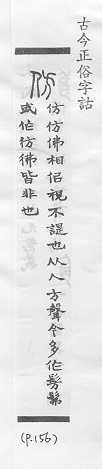 古今正俗字詁
仿
仿仿佛相佀視不諟也从人方聲今多作髣髴
或作彷彿皆非也
(P.156)